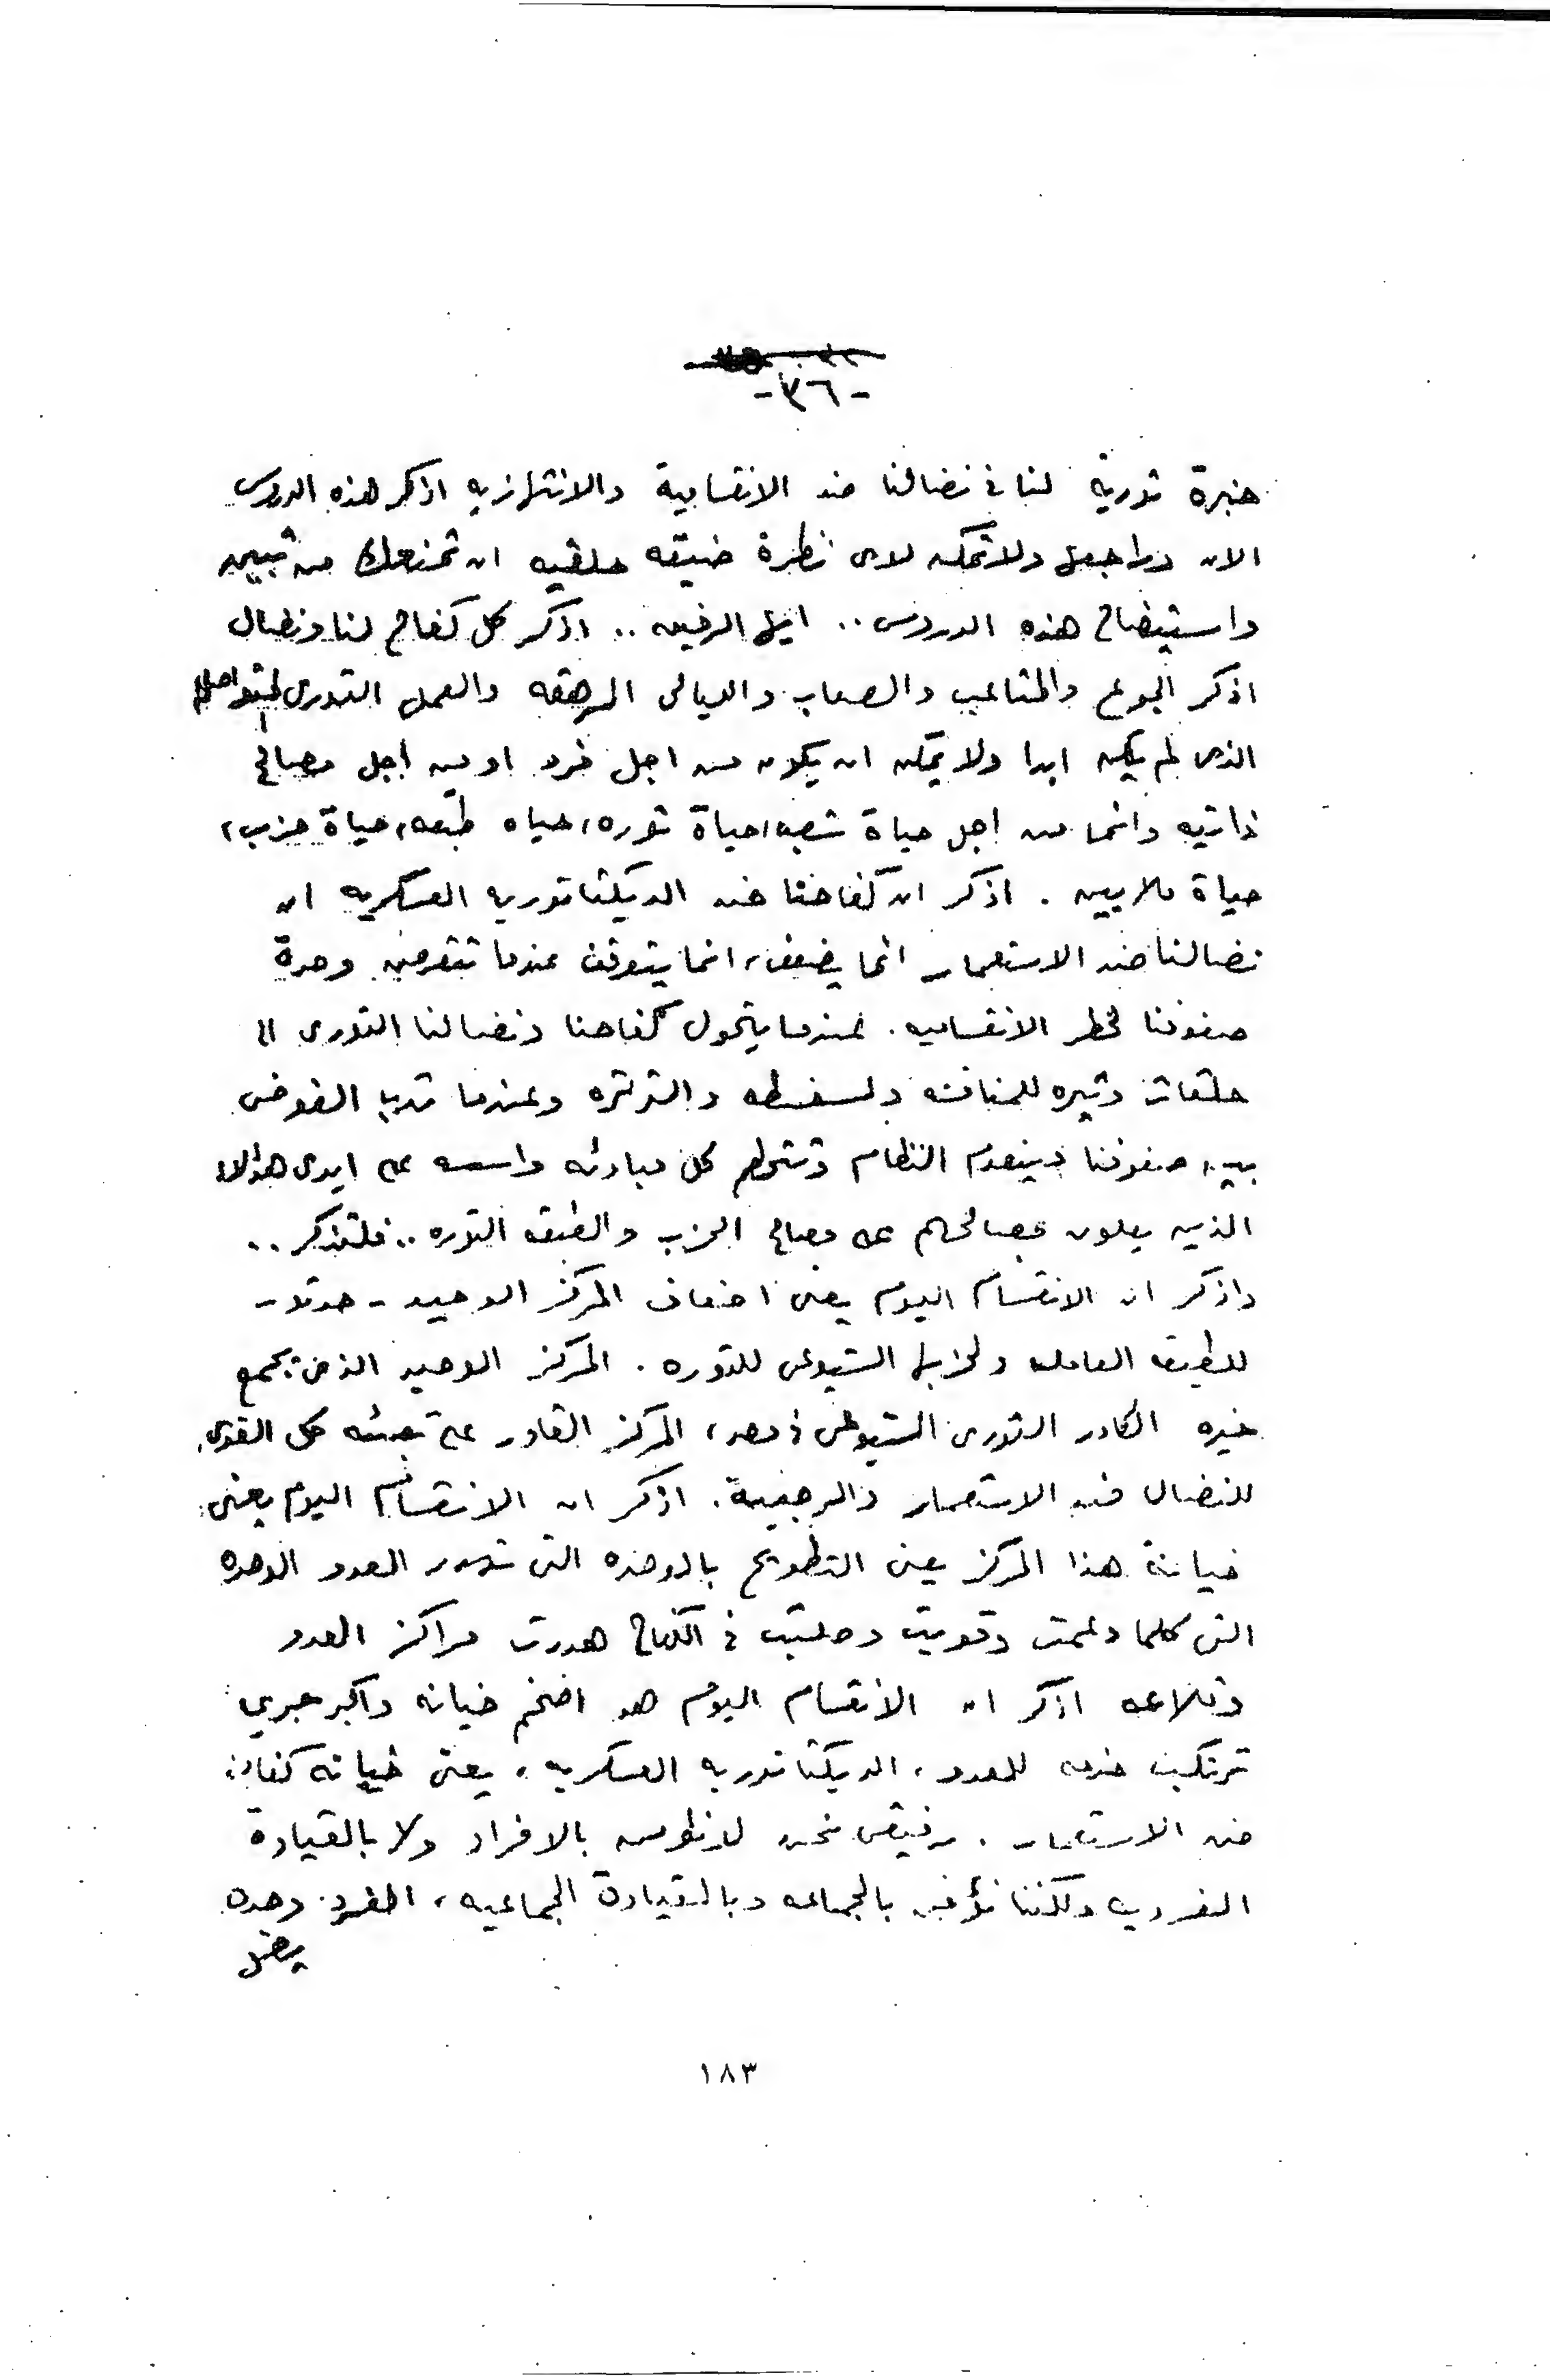 -٣٦-
خبرة ثورية لنا فى نضالنا ضد الانقسامية والانتهازيه اذكر هذه الدروس
الان وراجعها ولا تمكن لاى نظرة ضيقه حلقيه ان تمنعك من تبين
واستيضاح هذه الدروس .. ايها الرفيق .. اذكر كل كفاح لنا ونضال
اذكر الجوع والمتاعب والصعاب والليالى المرهقه والعمل الثورى المتواصل
الذى لم يكن ابدا ولا يمكن ان يكون من اجل فرد او من أجل مصالح
ذاتيه وانما من اجل حياة شعب، حياة ثوره، حياه طبقه، حياة حزب،
حياة ملايين . اذكر ان كفاحنا ضد الديكتاتوريه العسكريه ان
نضالنا ضد الاستعمار انما يضعف، انما يتوقف عندما تتعرض وحدة
صفوفنا لخطر الانقساميه . عندما يتحول كفاحنا ونضالنا الثورى الى
حلقات وثيره للمناقشه والسفسطه والثرثره وعندما تدب الفوضى
بين صفوفنا وينعدم النظام وتتحطم كل مبادئه واسسه على ايدى هؤلاء
الذين يعلون مصالحهم على مصالح الحزب والطبقه الثوره .. فلتذكر ..
واذكر ان الانقسام اليوم يعنى اضعاف المركز الوحيد - حدتو -
للطبقه العامله ولحزبها الشيوعى للثوره . المركز الوحيد الذى يجمع
خيره الكادر الثورى الشيوعى فى مصر، المركز القادر على تعبئه كل القوى
للنضال ضد الاستعمار والرجعية . اذكر ان الانقسام اليوم يعنى
خيانة هذا المركز يعنى التطويح بالوحده التى العدو الوحده
التى كلما دعمت وقويت وصلبت فى الكفاح هددت مراكز العدو
وقلاعه اذكر ان الانقسام اليوم هو اضخم خيانه واكبر
ترتكب خدمه للعدو ، الديكتاتوريه العسكريه ، يعنى خيانه كفاحنا
ضد الاستعمار . رفيقى نحن لا نؤمن بالافراد ولا بالقيادة
الفرديه ولكننا نؤمن بالجماعه وبالقيادة الجماعيه ، الفرد وحده
يضل
١٨٣